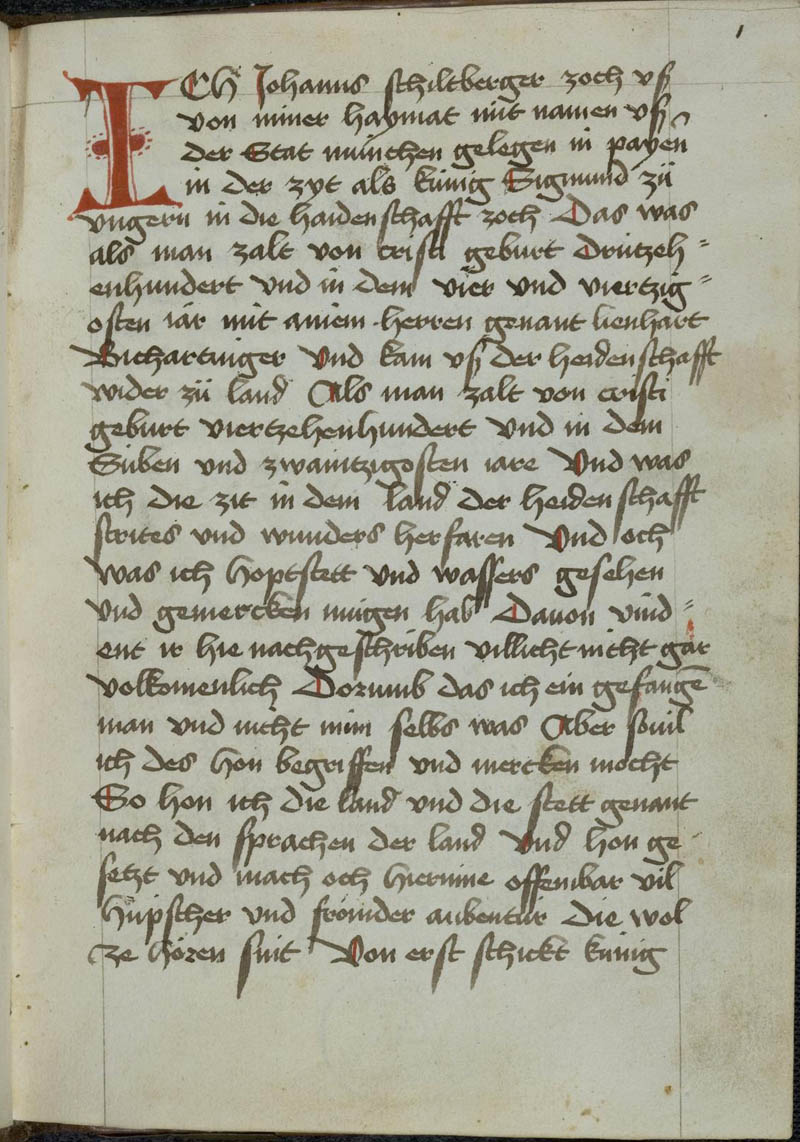 1
ICH Johanns schiltberger zoch uß
von miner haymat mit namen uß
der Stat münchen gelegen in payeñ
in der zyt als küng Sigmund zü
ungern in die haidenschafft zoch Das was
als man zalt von cristi geburt Drützeh=
enhundert und in dem vier und viertzig=
osten iar mit ainem herren genant lienhart
Richartinger und kam uß der heidenschafft
wider zü land Als man zalt von cristi
geburt viertzehenhundert und in dem
Süben und zwaintzigosten iare Und was
ich die zit in dem land der heidenschafft
strites und wunders herfaren Und och
was ich hoptstett und wassers gesehen
und gemercken mügen hab Dauon vind=
ent ir hie nachgeschriben villicht nicht gar
volkomenlich Dorumb das ich ein gefangē
man und nicht min selbs was Aber souil
ich des hon begriffen und mercken mocht
So hon ich die land und die stett genant
nach den sprachen der land Und hon ge
setzt und mach och hierinne offembar vil
hüpscher und frömder aubentür die wol
ze hören sint Von erst schickt küng